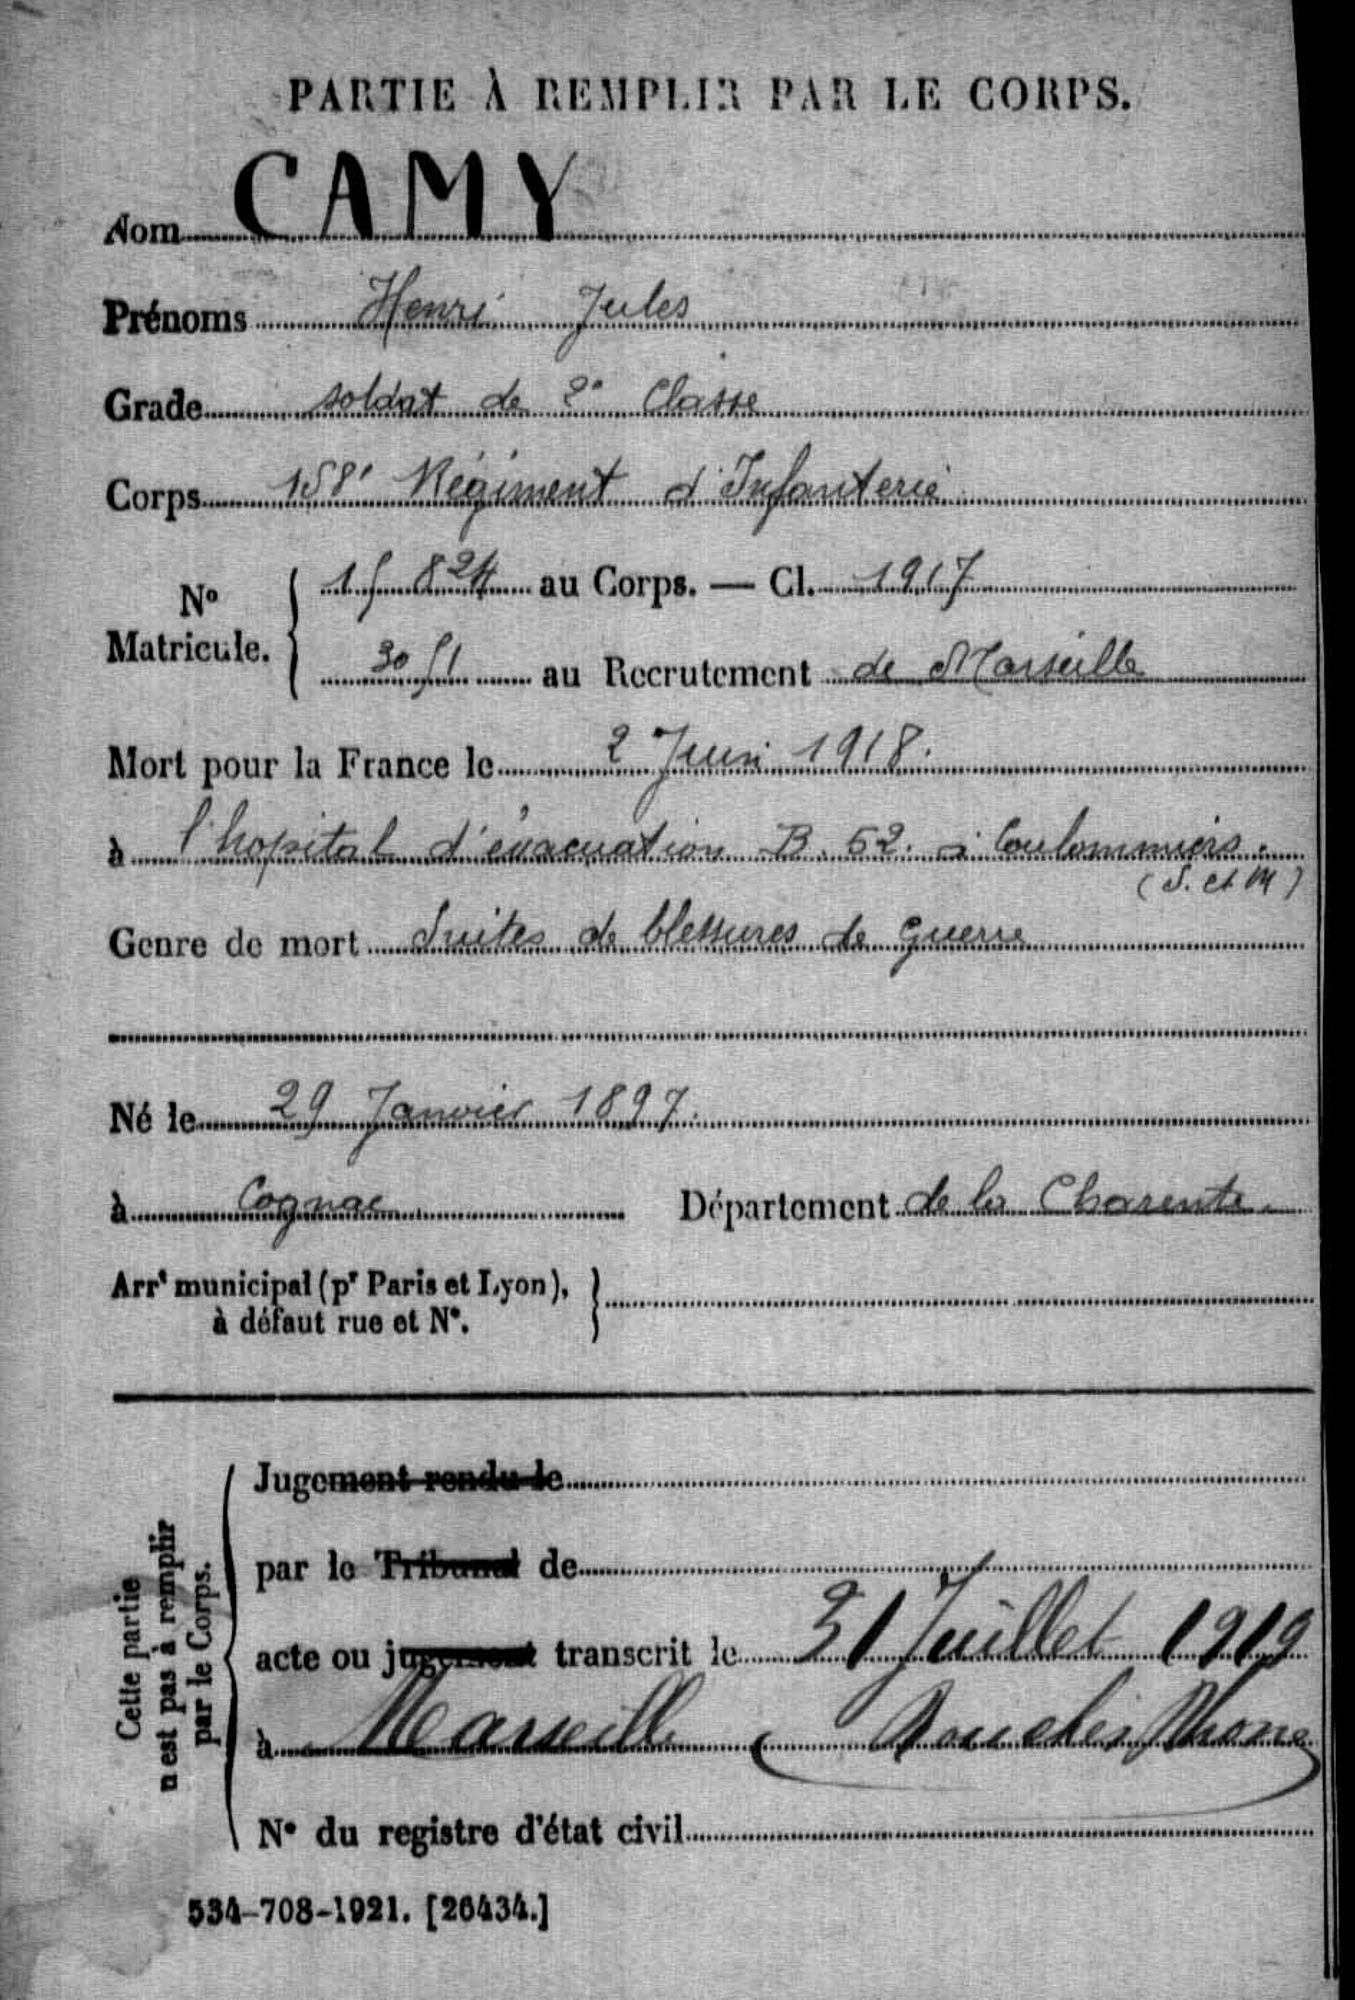 PARTIE À REMPLIR PAR LE CORPS.
Nom CAMY
Prénoms Henri Jules
Grade soldat de 2e Classe
Corps 158e Régiment d'Infanterie
No Matricule. 15 824 au Corps. — Cl. 1917
3051 au Recrutement de Marseille
Mort pour la France le 2 Juin 1918.
à l'hopital d'évacuation B. 52. à Coulommiers.
(S. et M)
Genre de mort Suites de blessures de guerre
Né le 29 Janvier 1897.
à Cognac Département de la Charente.
Arrt municipal (pr Paris et Lyon),
à défaut rue et N°.
Cette partie
n'est pas à remplir
par le Corps.
Jugement rendu le
par le Tribunal de
acte ou jugement transcrit le 31 Juillet 1919
à Marseille (Bouches Rhone)
N° du registre d'état civil
534-708-1921. [26434.]